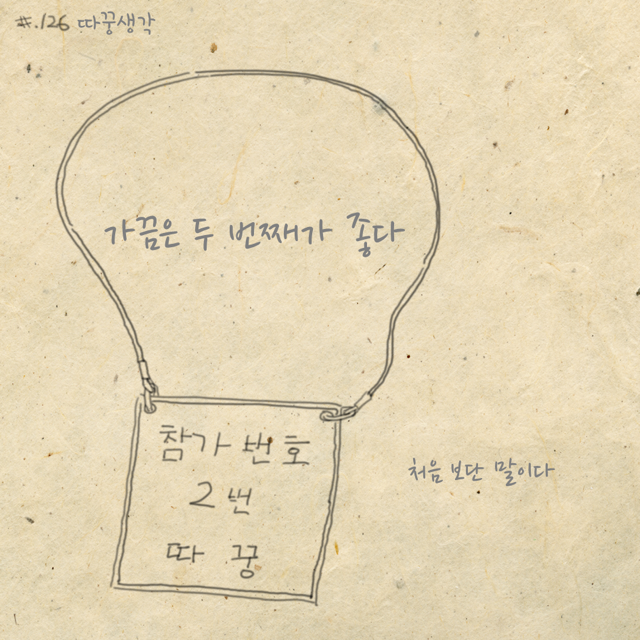 #.126 따꿍생각
가끔은 두 번째가 좋다
참가번호
2번
따꿍
처음 보단 말이다